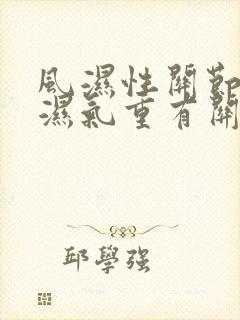 風濕性關節
濕氣重有關
邱學强